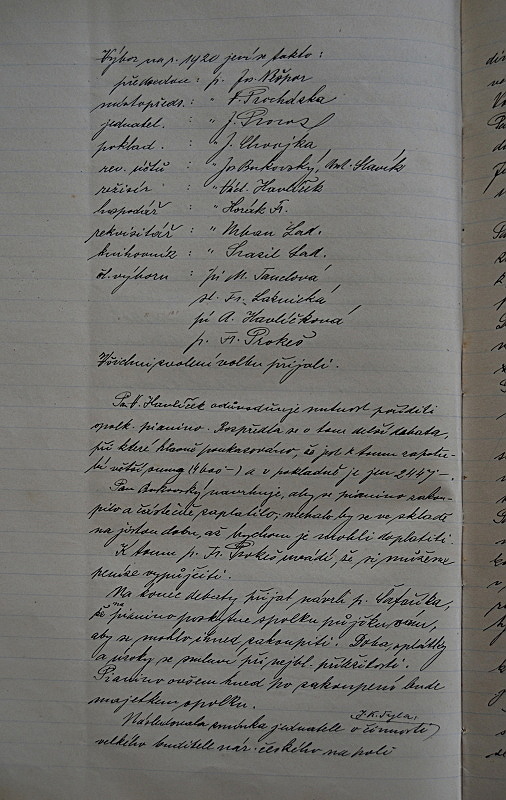 Výbor na r. 1920 jeví se takto:
předseda: p. Jos. Nešpor
místopředs.: " F. Procházka
jednatel: " J. Provaz
poklad.: " J. Chvojka
rev. účtů: " Jos Bukovský, Ant. Slavík
režisér: " Václ. Havlíček
hospodář: " Horák Fr.
rekvisitář: " Urban Lad.
knihovník: " Lad.
čl. výboru: pí M. Tauclová
sl. Fr. Láznická
pí A. Havlíčková
p. Fr. Prokeš
Všichni zvolení volbu přijali.
Pan V. Havlíček odůvodňuje nutnost pořídili
spolk. pianino. Rozpředla se o tom delší debata,
při které hlavně poukazováno, že jest k tomu zapotře-
bí větší sumy (4600-) a v pokladně je jen 2447-.
Pan Bukovský navrhuje, aby se pianino zakou-
pilo a částečně zaplatilo, nechalo by se ve skladě
na jistou dobu, až bychom je mohli doplatiti.
K tomu p. Fr. Prokeš uvádí, že si můžeme
peníze vypůjčiti.
Na konec debaty přijat návrh p. Šafaříka,
že na pianino poskytne spolku půjčku
aby se mohlo ihned zakoupiti. Doba splátky
a úroky se smluví při nejbl. příležitosti.
Pianino ovšem hned po zakoupení bude
majetkem spolku.
Následovala vzmínka jednatele o činnosti J. K. Tyla,
velkého buditele nár. českého na poli